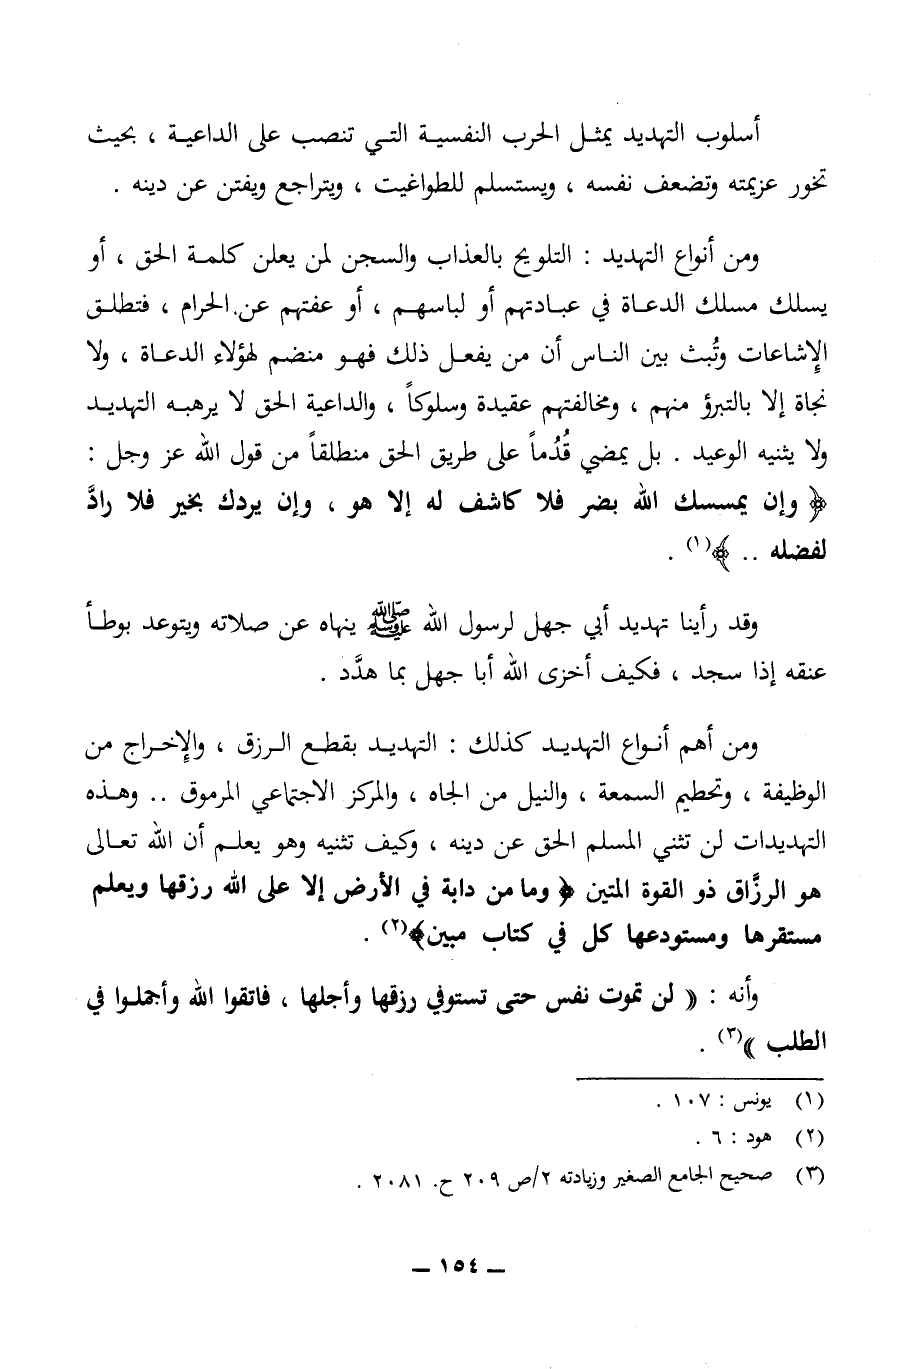 أسلوب التهديد يمثل الحرب النفسية التي تنصب على الداعية ، بحيث
تخور عزيمته وتضعف نفسه ، ويستسلم للطواغيت ، ويتراجع ويفتن عن دينه .
ومن أنواع التهديد : التلويح بالعذاب والسجن لمن يعلن كلمة الحق ، أو
يسلك مسلك الدعاة في عبادتهم أو لباسهم ، أو عفتهم عن الحرام ، فتطلق
الإشاعات وتُبث بين الناس أن من يفعل ذلك فهو منضم لهؤلاء الدعاة ، ولا
نجاة إلا بالتبرؤ منهم ، ومخالفتهم عقيدة وسلوكاً ، والداعية الحق لا يرهبه التهديد
ولا يثنيه الوعيد . بل يمضي قُدُماً على طريق الحق منطلقاً من قول الله عز وجل :
﴿ وإن يمسسك الله بضر فلا كاشف له إلا هو ، وإن يردك بخير فلا رادَّ
لفضله .. ﴾(١) .
وقد رأينا تهديد أبي جهل لرسول الله ﷺ ينهاه عن صلاته ويتوعد بوطأ
عنقه إذا سجد ، فكيف أخزى الله أبا جهل بما هدَّد .
ومن أهم أنواع التهديد كذلك : التهديد بقطع الرزق ، والإخراج من
الوظيفة ، وتحطيم السمعة ، والنيل من الجاه ، والمركز الاجتماعي المرموق .. وهذه
التهديدات لن تثني المسلم الحق عن دينه ، وكيف تثنيه وهو يعلم أن الله تعالى
هو الرزَّاق ذو القوة المتين ﴿ وما من دابة في الأرض إلا على الله رزقها ويعلم
مستقرها ومستودعها كل في كتاب مبين﴾(٢) .
وأنه : (( لن تموت نفس حتى تستوفي رزقها وأجلها ، فاتقوا الله وأجملوا في
الطلب ))(٣) .
(١) يونس : ١٠٧ .
(٢) هود : ٦ .
(٣) صحيح الجامع الصغير وزيادته ٢/ص ٢٠٩ ح. ٢٠٨١ .
— ١٥٤ —